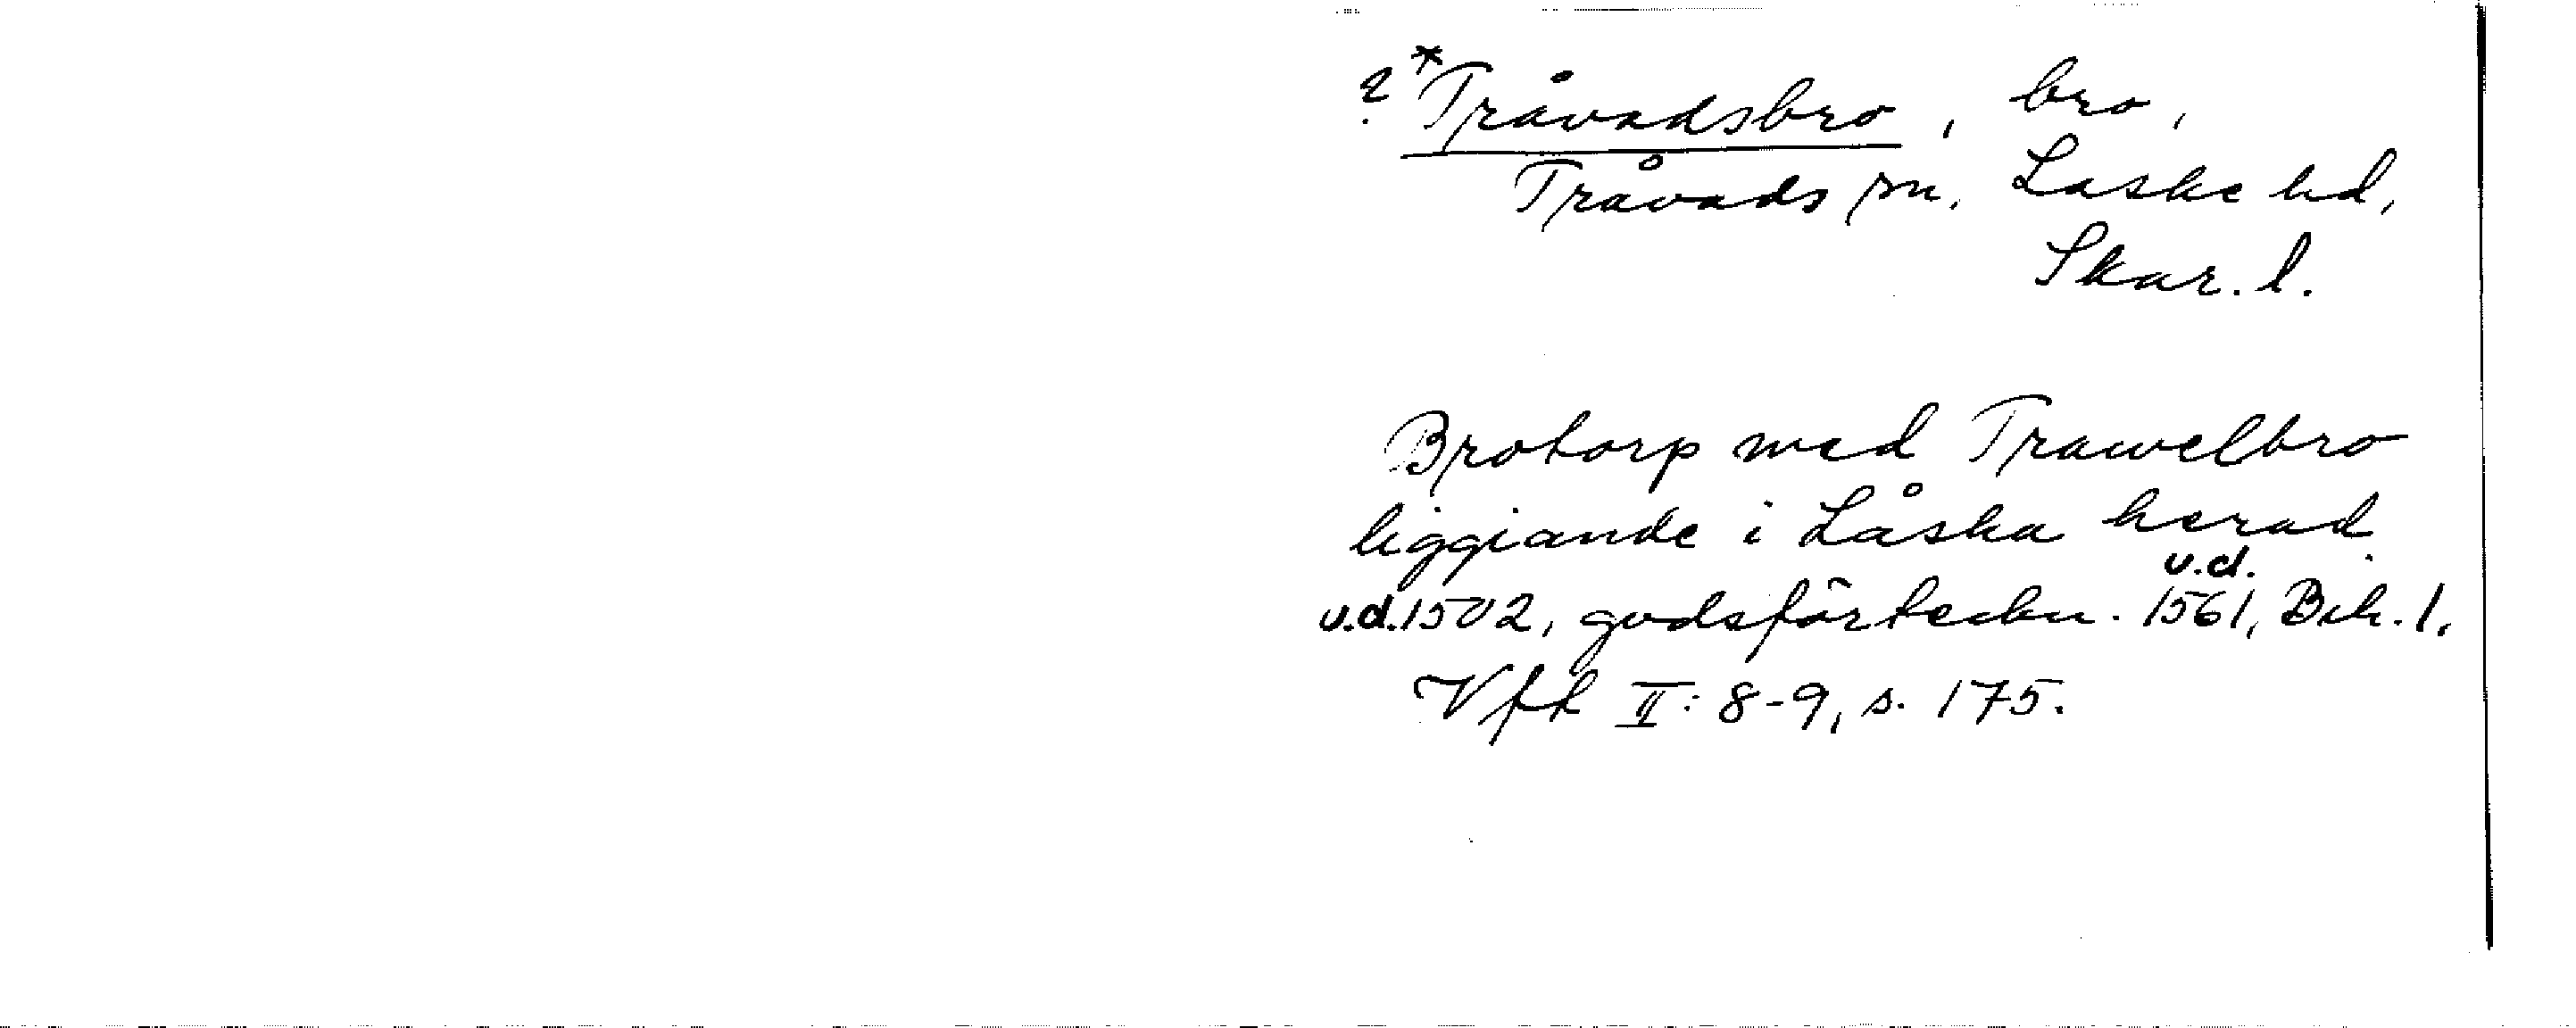 ? *Tråvadsbro, bro,
Tråvads sn, Laske hd,
Skar. l.
Brotorp med Trawelbro
liggiande i Låska herad
u.d. 1502, godsförteckn. u.d. 1561, Bih. 1,
Vfh II: 8-9, s. 175.